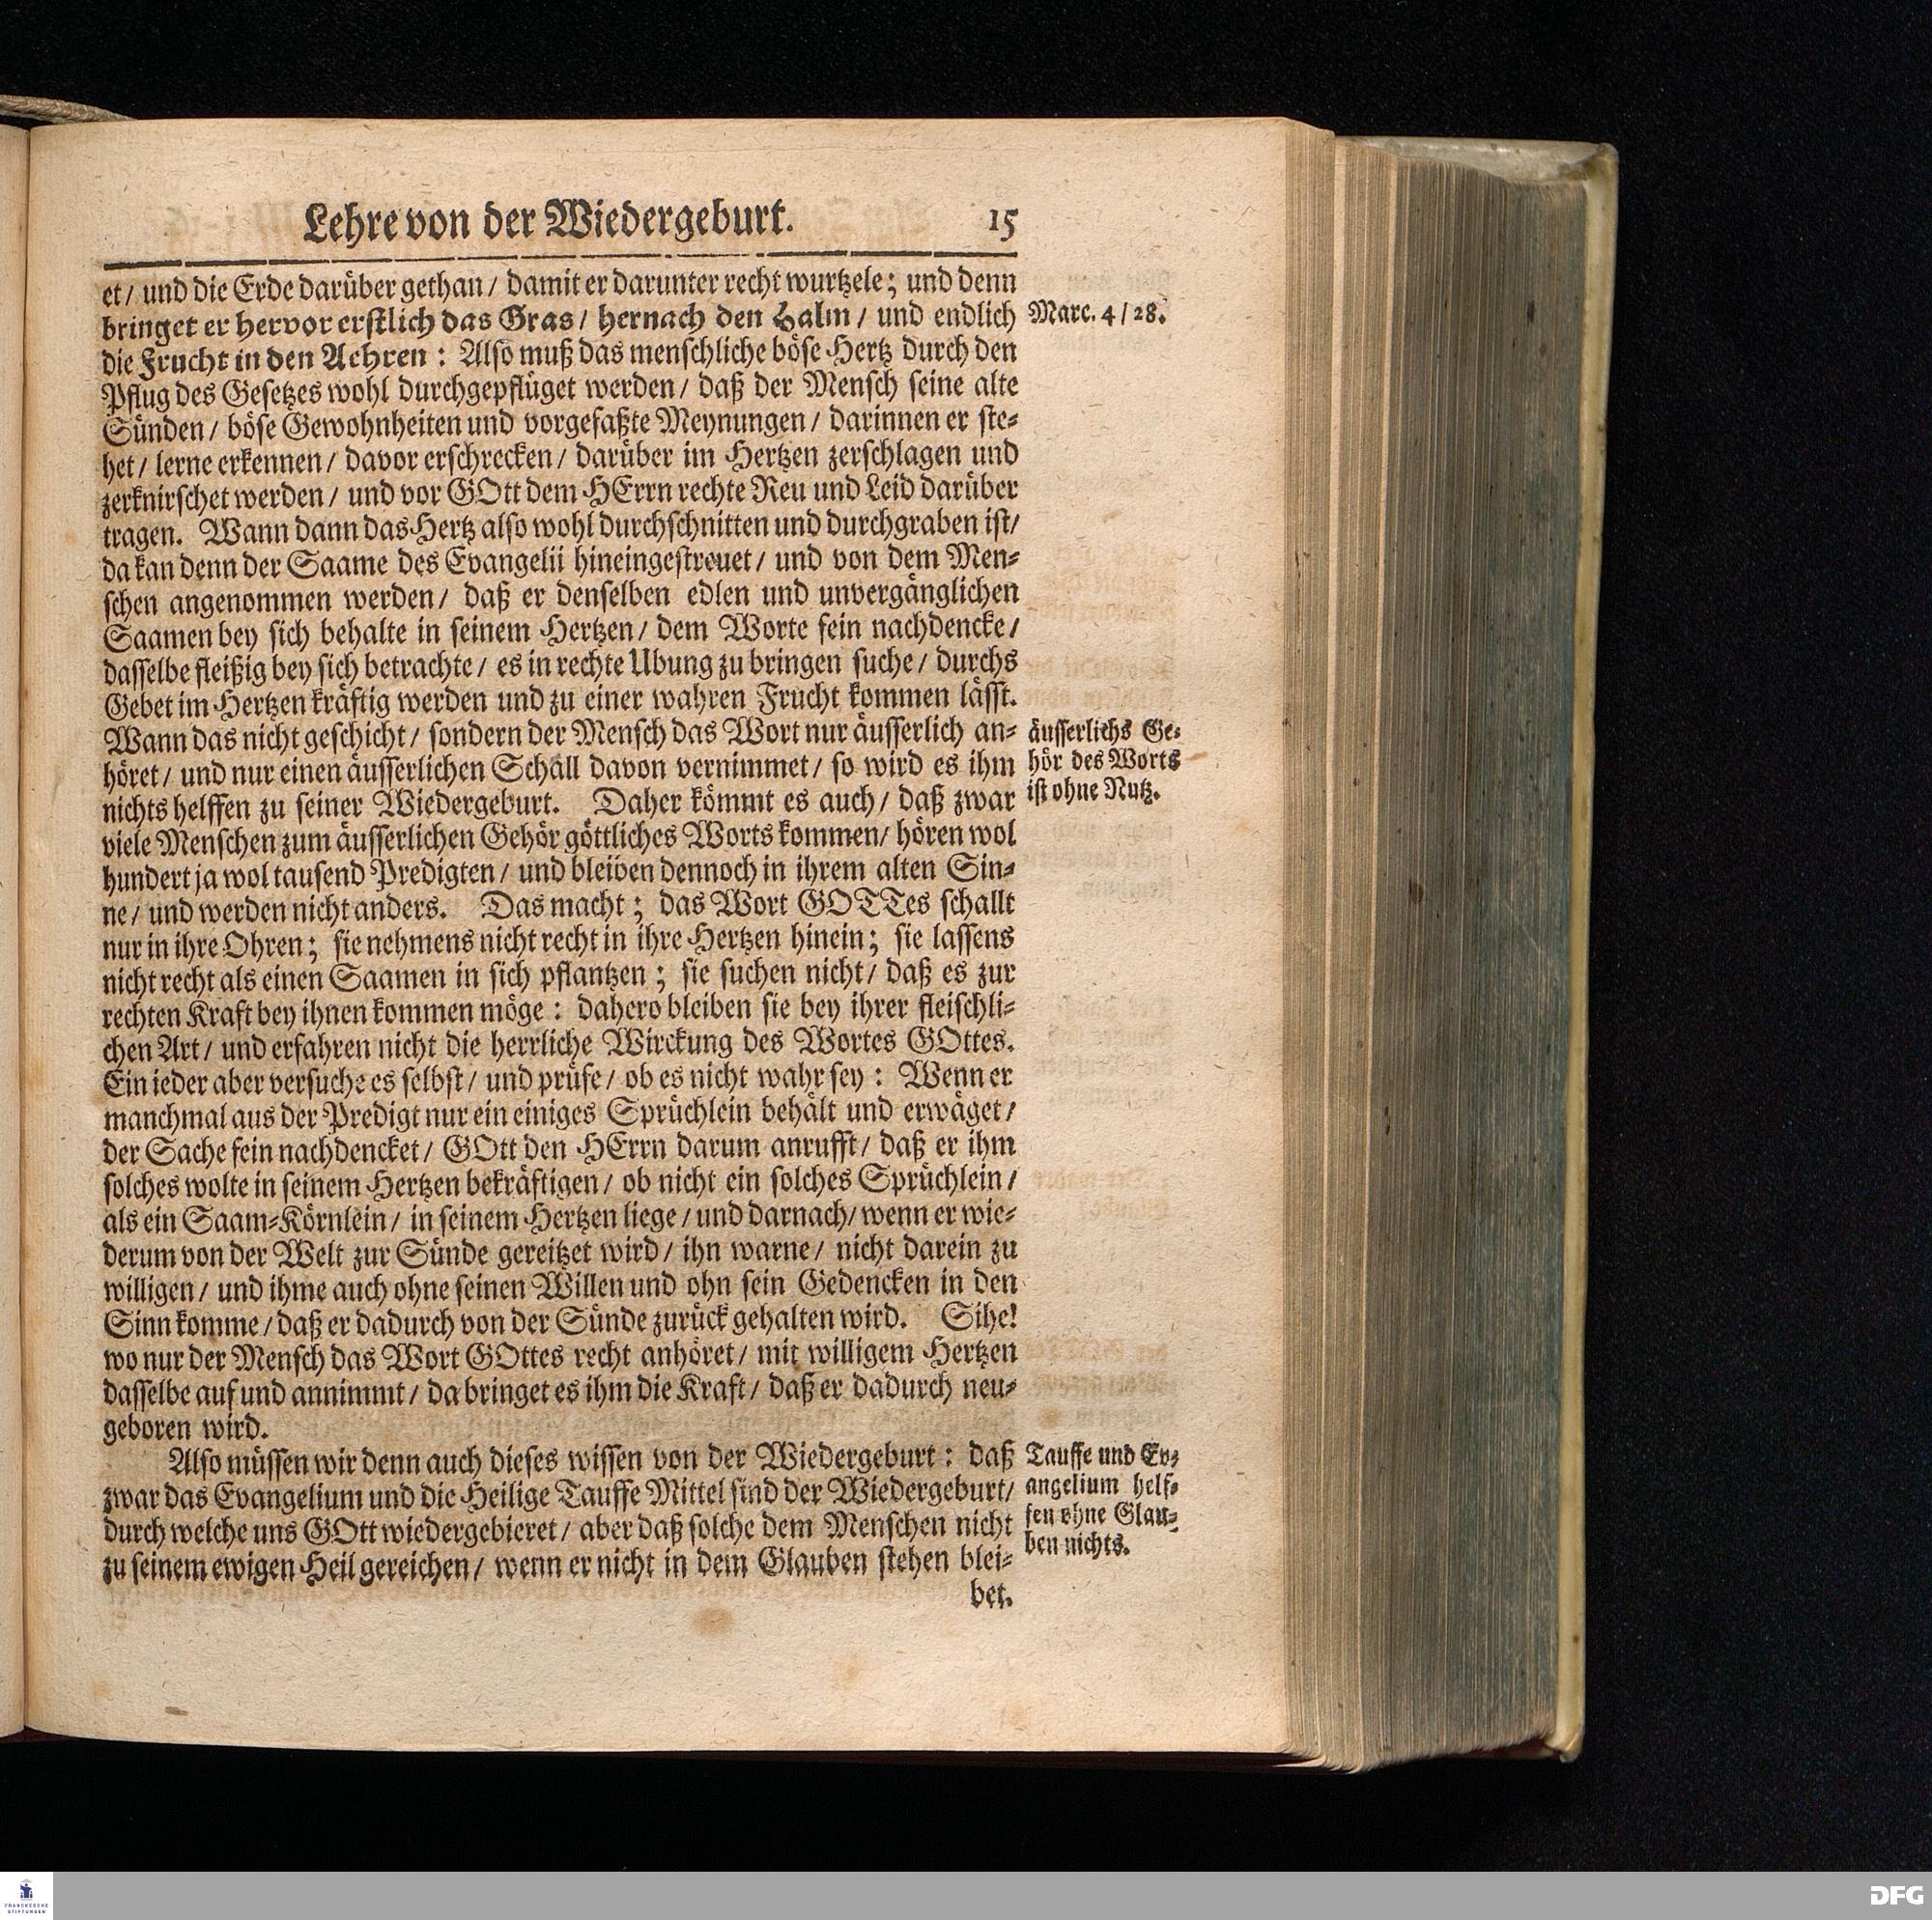 Lehre von der Wiedergeburt. 15
et/ und die Erde darüber gethan/ damit er darunter recht wurtzele; und denn
bringet er hervor erstlich das Gras/ hernach den Halm/ und endlich
die Frucht in den Aehren: Also muß das menschliche böse Hertz durch den
Pflug des Gesetzes wohl durchgepflüget werden/ daß der Mensch seine alte
Sünden/ böse Gewohnheiten und vorgefaßte Meynungen/ darinnen er ste-
het/ lerne erkennen/ davor erschrecken/ darüber im Hertzen zerschlagen und
zerknirschet werden/ und vor GOtt dem HErrn rechte Reu und Leid darüber
tragen. Wann dann das Hertz also wohl durchschnitten und durchgraben ist/
da kan denn der Saame des Evangelii hineingestreuet/ und von dem Men-
schen angenommen werden/ daß er denselben edlen und unvergänglichen
Saamen bey sich behalte in seinem Hertzen/ dem Worte fein nachdencke/
dasselbe fleißig bey sich betrachte/ es in rechte Ubung zu bringen suche/ durchs
Gebet im Hertzen kräftig werden und zu einer wahren Frucht kommen lässt.
Wann das nicht geschicht/ sondern der Mensch das Wort nur äusserlich an-
höret/ und nur einen äusserlichen Schall davon vernimmet/ so wird es ihm
nichts helffen zu seiner Wiedergeburt. Daher kömmt es auch/ daß zwar
viele Menschen zum äusserlichen Gehör göttliches Worts kommen/ hören wol
hundert ja wol tausend Predigten/ und bleiben dennoch in ihrem alten Sin-
ne/ und werden nicht anders. Das macht; das Wort GOTTes schallt
nur in ihre Ohren; sie nehmens nicht recht in ihre Hertzen hinein; sie lassens
nicht recht als einen Saamen in sich pflantzen; sie suchen nicht/ daß es zur
rechten Kraft bey ihnen kommen möge: dahero bleiben sie bey ihrer fleischli-
chen Art/ und erfahren nicht die herrliche Wirckung des Wortes GOttes.
Ein ieder aber versuche es selbst/ und prüfe/ ob es nicht wahr sey: Wenn er
manchmal aus der Predigt nur ein einiges Sprüchlein behält und erwäget/
der Sache fein nachdencket/ GOtt den HErrn darum anrufft/ daß er ihm
solches wolte in seinem Hertzen bekräftigen/ ob nicht ein solches Sprüchlein/
als ein Saam-Körnlein/ in seinem Hertzen liege/ und darnach/ wenn er wie-
derum von der Welt zur Sünde gereitzet wird/ ihn warne/ nicht darein zu
willigen/ und ihme auch ohne seinen Willen und ohn sein Gedencken in den
Sinn komme/ daß er dadurch von der Sünde zurück gehalten wird. Sihe!
wo nur der Mensch das Wort GOttes recht anhöret/ mit willigem Hertzen
dasselbe auf und annimmt/ da bringet es ihm die Kraft/ daß er dadurch neu-
geboren wird.
Also müssen wir denn auch dieses wissen von der Wiedergeburt: daß
zwar das Evangelium und die Heilige Tauffe Mittel sind der Wiedergeburt/
durch welche uns GOtt wiedergebieret/ aber daß solche dem Menschen nicht
zu seinem ewigen Heil gereichen/ wenn er nicht in dem Glauben stehen blei-
bet.
Marc. 4/28.
äusserlichs Ge-
hör des Worts
ist ohne Nutz.
Tauffe und Ev-
angelium helf-
fen ohne Glau-
ben nichts.
FRANCKESCHE
STIFTUNGEN
DFG